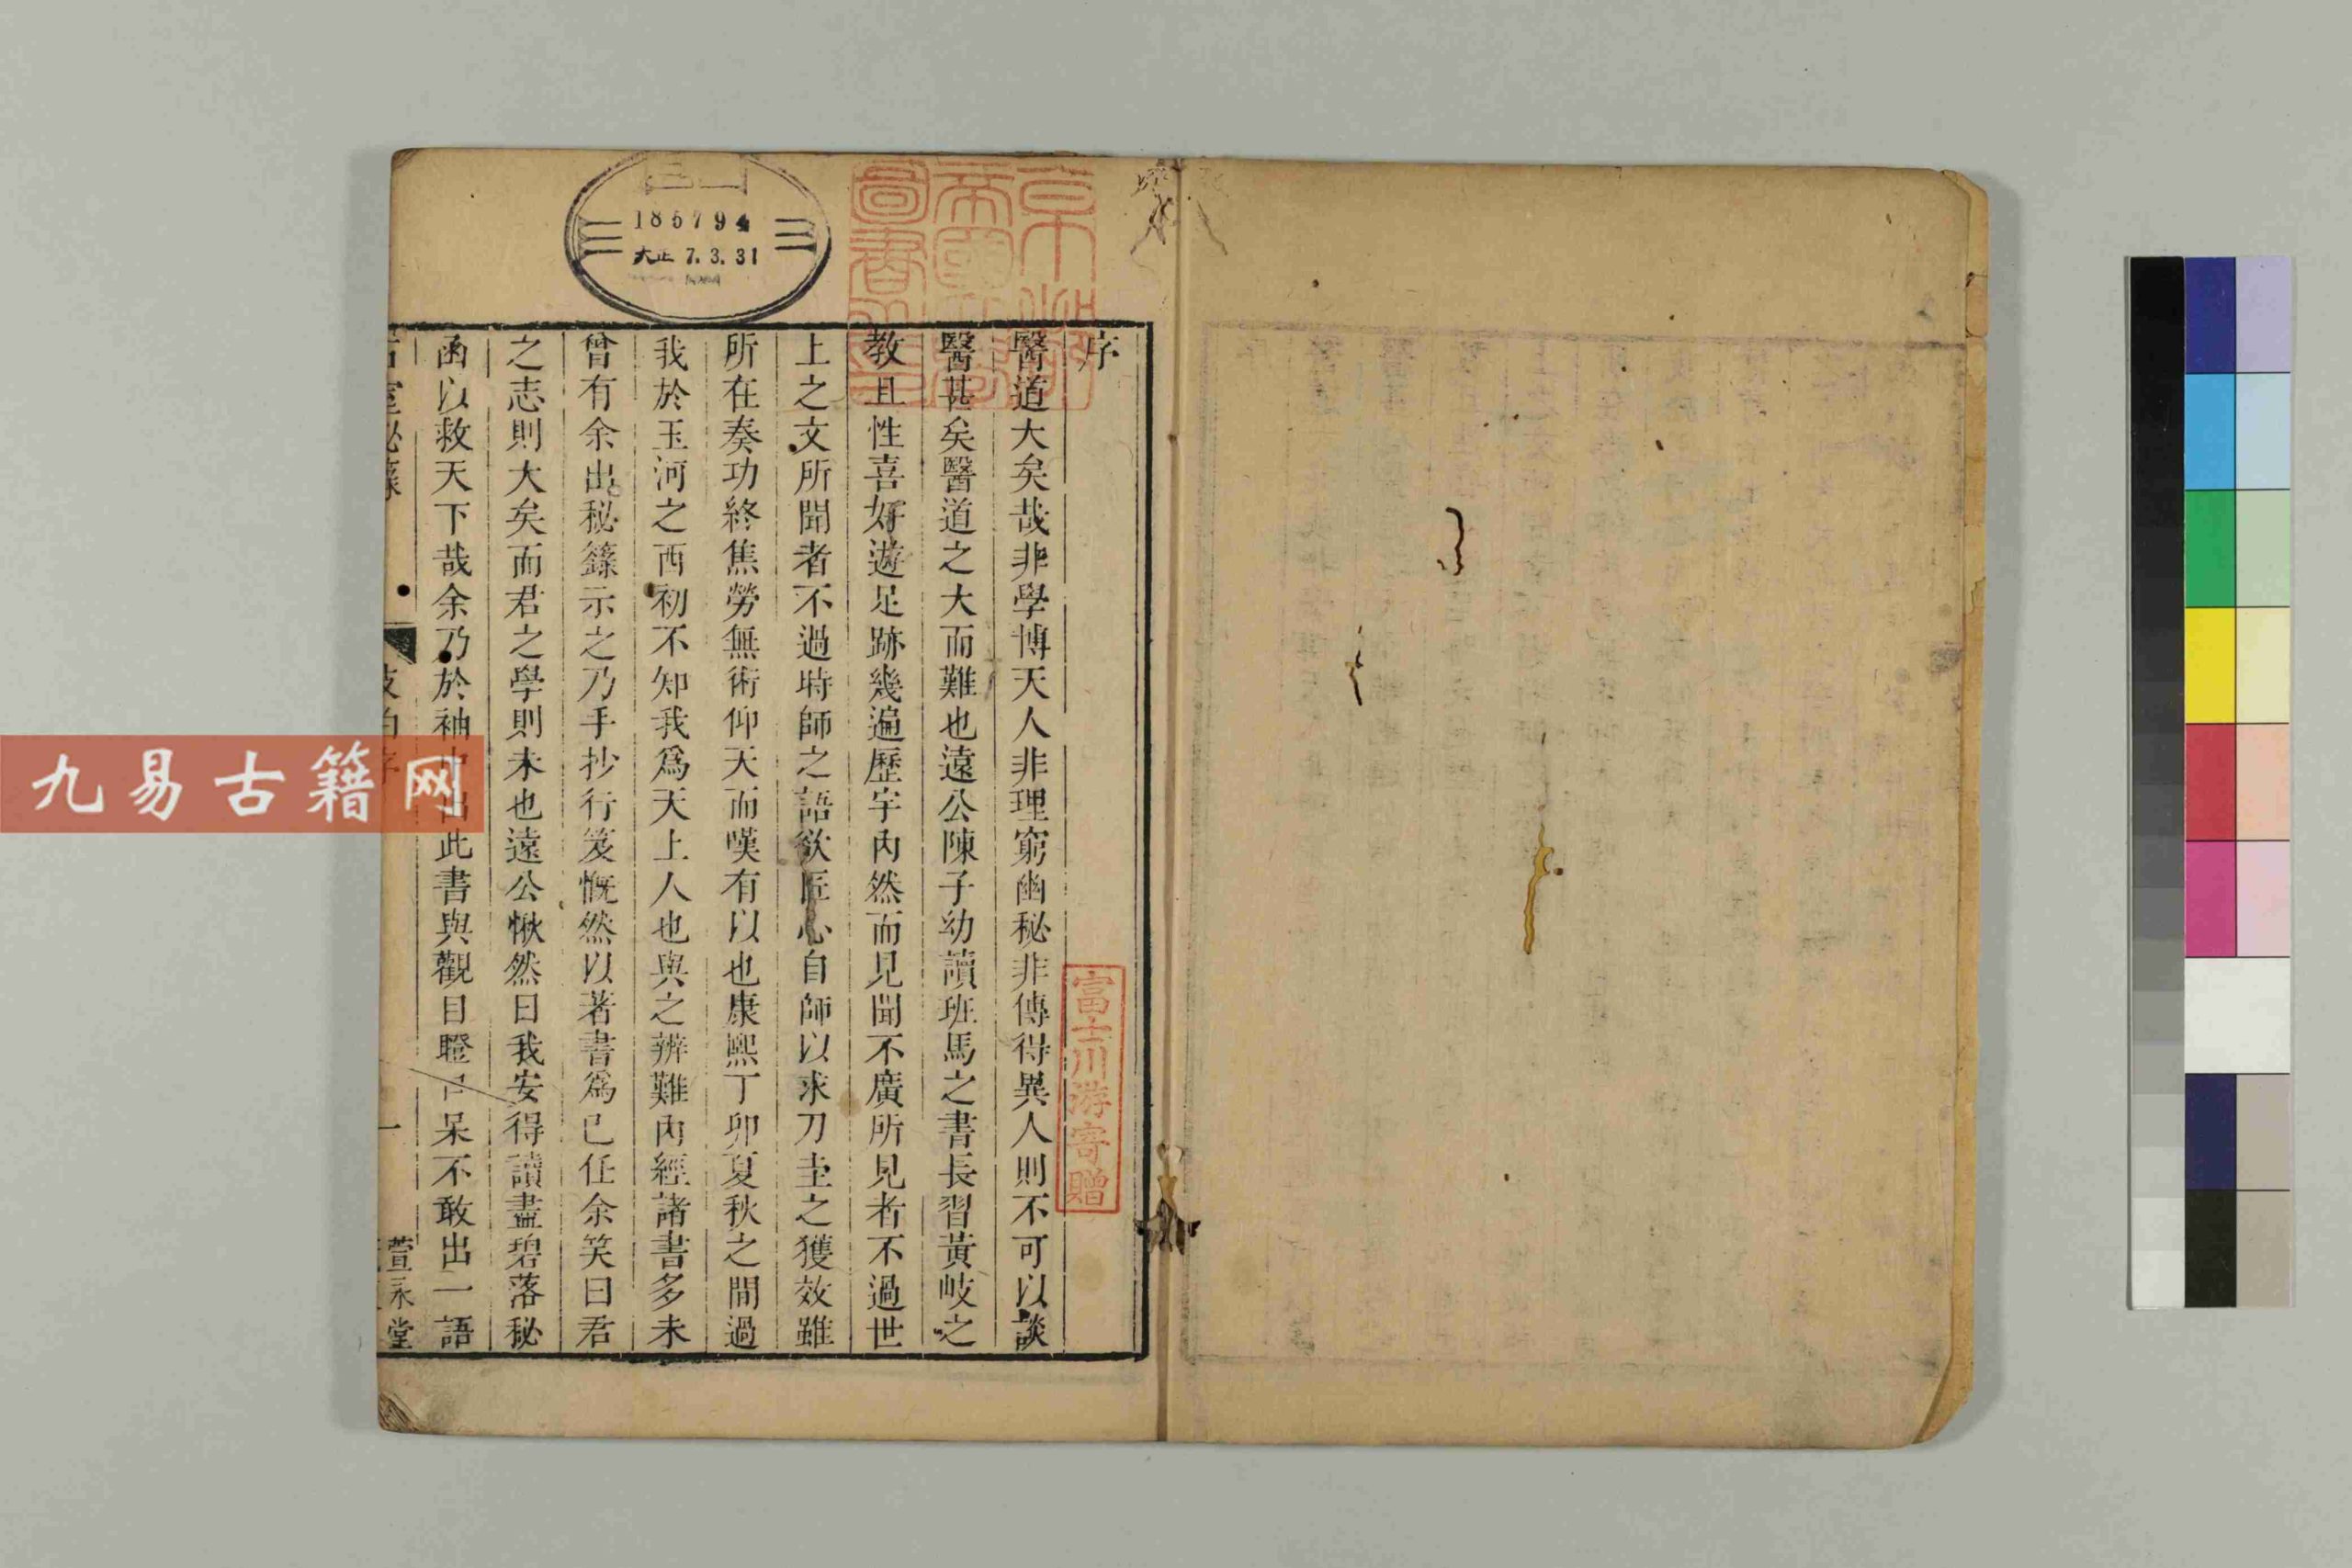 序
醫道大矣哉非學博天人非理窮幽秘非傳得異人則不可以談
醫甚矣醫道之大而難也遠公陳子幼讀班馬之書長習黃岐之
教且性喜好遊足跡幾遍歷宇內然而見聞不廣所見者不過世
上之文所聞者不過時師之語欲匠心自師以求刀圭之獲效雖
所在奏功終焦勞無術仰天而嘆有以也康熙丁卯夏秋之間過
我於玉河之西初不知我爲天上人也與之辨難內經諸書多未
曾有余出秘籙示之乃手抄行笈慨然以著書爲己任余笑曰君
之志則大矣而君之學則未也遠公愀然曰我安得讀盡碧落秘
函以救天下哉余乃於袖中出此書與觀目瞪口呆不敢出一語
萱永堂
富士川游寄贈
京都帝國大學圖書之印
185794
大正 7.3.31
九易古籍网